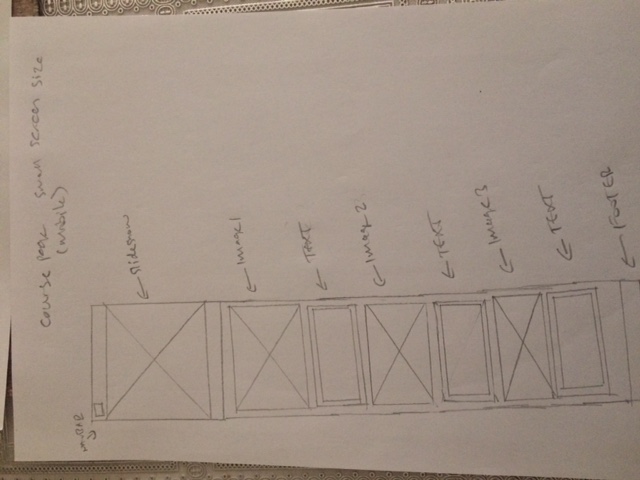 course page small screen size
(mobile)
NAVBAR
slideshow
Image 1
TEXT
Image 2
TEXT
Image 3
TEXT
FOOTER